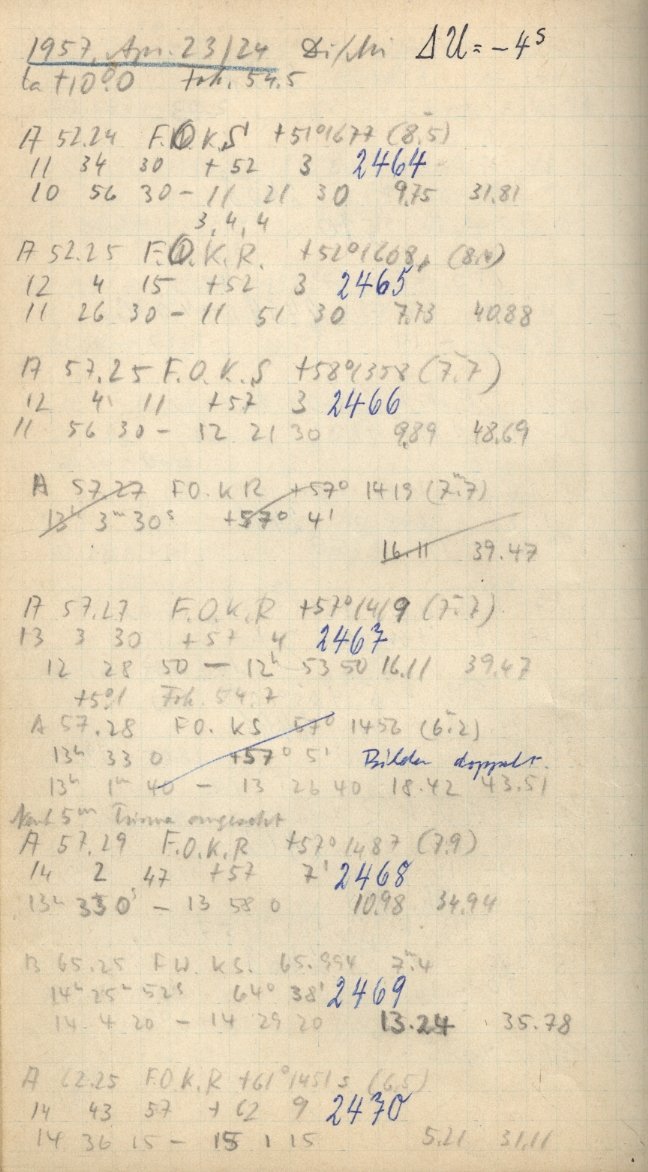 1957, Apr. 23/24 ΔU = -4ˢ
ta +10°0 Fok. 54.5
A 52.24 F.O.K.S +51°1677 (8.5)
11 34 30 +52 3 2464
10 56 30 - 11 21 30 9.75 31.81
3, 4, 4
A 52.25 F.O.K.R. +52°1608
12 4 15 +52 3 2465
11 26 30 - 11 51 30 7.73 40.88
A 57.25 F.O.K.S +58°1358 (7.7)
12 4 11 +57 3 2466
11 56 30 - 12 21 30 9.89 48.69
A 57.27 F.O.K R +57° 1419 (7ᵐ.7)
13ʰ 3ᵐ 30ˢ +57° 4'
16.11 39.47
A 57.27 F.O.K.R +57°1419 (7ᵐ.7)
13 3 30 +57 4 2467
12 28 50 - 12ʰ 53 50 16.11 39.47
+5°1 Fok. 54.7
A 57.28 F.O. KS 57° 1456 (6ᵐ.2)
13ʰ 33 0 +57° 5' Bilder doppelt.
13ʰ 1ᵐ 40 - 13 26 40 18.42 43.51
Nach 5ᵐ
A 57.29 F.O.K.R +57°1487 (7.9)
14 2 47 +57 7' 2468
13ʰ 33 0ˢ - 13 58 0 10.98 34.94
B 65.25 F.W. KS. 65.994 7ᵐ.4
14ʰ 25ᵐ 52ˢ 64° 38' 2469
14 4 20 - 14 29 20 13.24 35.78
A 62.25 F.O.K.R +61°1451s (6.5)
14 43 57 +62 9 2470
14 36 15 - 15 1 15 5.21 31.11